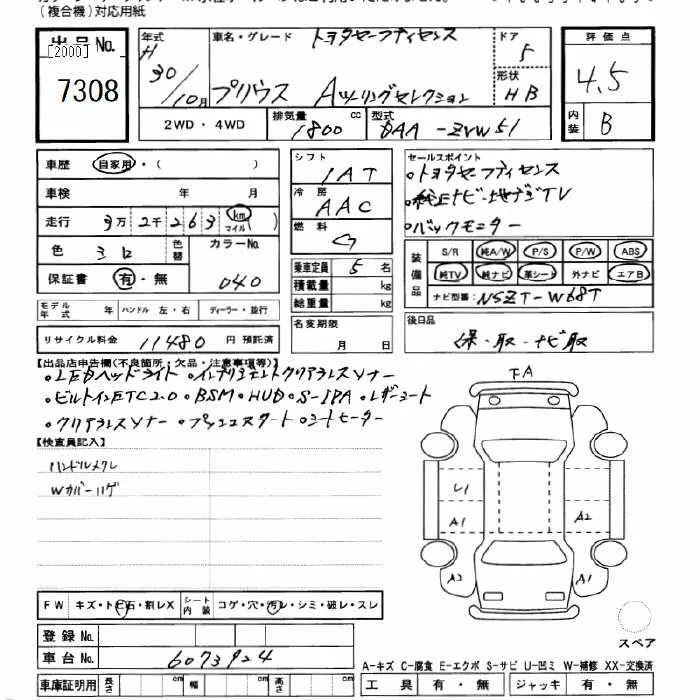 (複合機)対応用紙
出品No.
[2000]
7308
年式 H 30/10月
車名・グレード トヨタセーフティセンス
プリウス Aツーリングセレクション
ドア 5
形状 HB
評価点
4.5
内装 B
2WD・4WD
排気量 1800 cc
型式 DAA-ZVW51
車歴 自家用・( )
車検 年 月
走行 3万2千263 km マイル( )
色 シロ 色替 カラーNo. 040
保証書 有・無
シフト IAT
冷房 AAC
燃料 G
乗車定員 5名
積載量 kg
総重量 kg
セールスポイント
・トヨタセーフティセンス
・純正ナビ・地デジTV
・バックモニター
装備品
S/R 純A/W P/S P/W ABS
純TV 純ナビ 革シート 外ナビ エアB
ナビ型番 NSZT-W68T
モデル年式 年 ハンドル 左・右 ディーラー・並行
リサイクル料金 11480 円 預託済
名変期限 月 日
後日品
保・取・ナビ取
【出品店申告欄(不良箇所・欠品・注意事項等)】
・LEDヘッドライト ・インテリジェントクリアランスソナー
・ビルトインETC2.0 ・BSM・HUD・S-IPA・レザーシート
・クリアランスソナー ・プッシュスタート・シートヒーター
【検査員記入】
ハンドルスレ
Wカバーハゲ
FA
U1
A1
A2
A2
A1
FW キズ・トビ石・割レX シート内装 コゲ・穴・汚レ・シミ・破レ・スレ
登録No.
車台No. 6073924
スペア
A-キズ C-腐食 E-エクボ S-サビ U-凹ミ W-補修 XX-交換済
車庫証明用 長さ cm 幅 cm 高さ cm
工具 有・無 ジャッキ 有・無